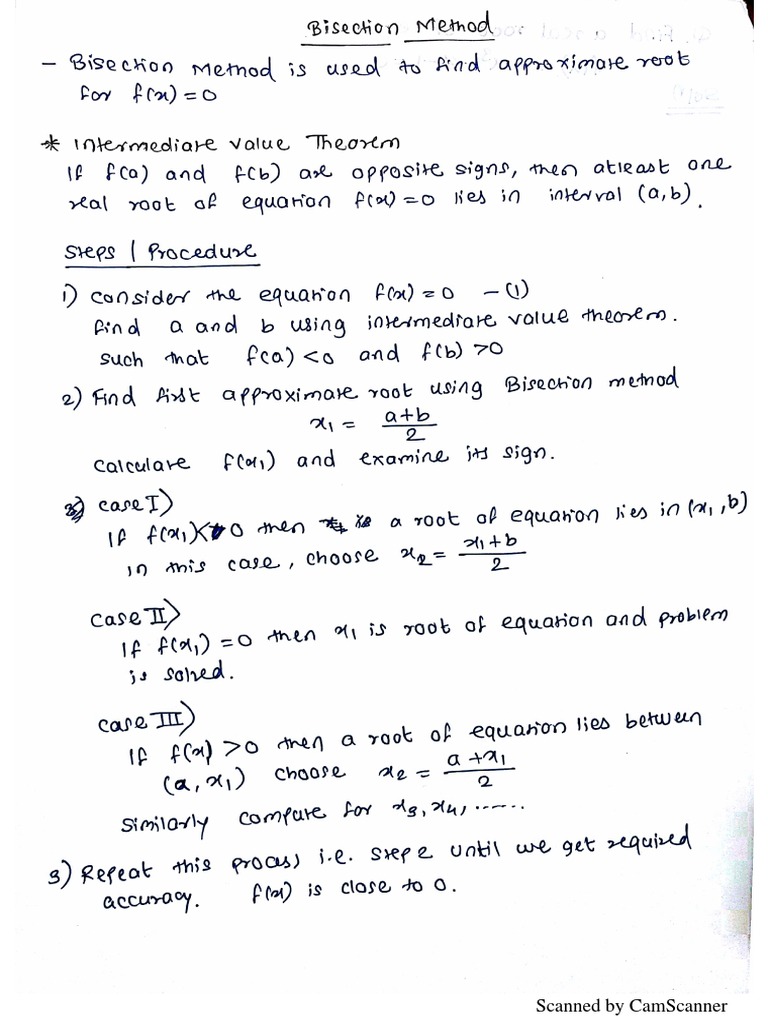 Bisection Method
- Bisection Method is used to find approximate root
for f(x) = 0
* Intermediate value Theorem
If f(a) and f(b) are opposite signs, then atleast one
real root of equation f(x) = 0 lies in interval (a,b).
Steps | Procedure
1) Consider the equation f(x) = 0 - (1)
find a and b using intermediate value theorem.
such that f(a) < 0 and f(b) > 0
2) Find first approximate root using Bisection method
x₁ = a+b / 2
calculate f(x₁) and examine its sign.
case I)
If f(x₁) < 0 then a root of equation lies in (x₁, b)
in this case, choose x₂ = x₁+b / 2
case II)
If f(x₁) = 0 then x₁ is root of equation and problem
is solved.
case III)
If f(x) > 0 then a root of equation lies between
(a, x₁) choose x₂ = a+x₁ / 2
Similarly compute for x₃, x₄, ......
3) Repeat this process i.e. step 2 until we get required
accuracy. f(x) is close to 0.
Scanned by CamScanner